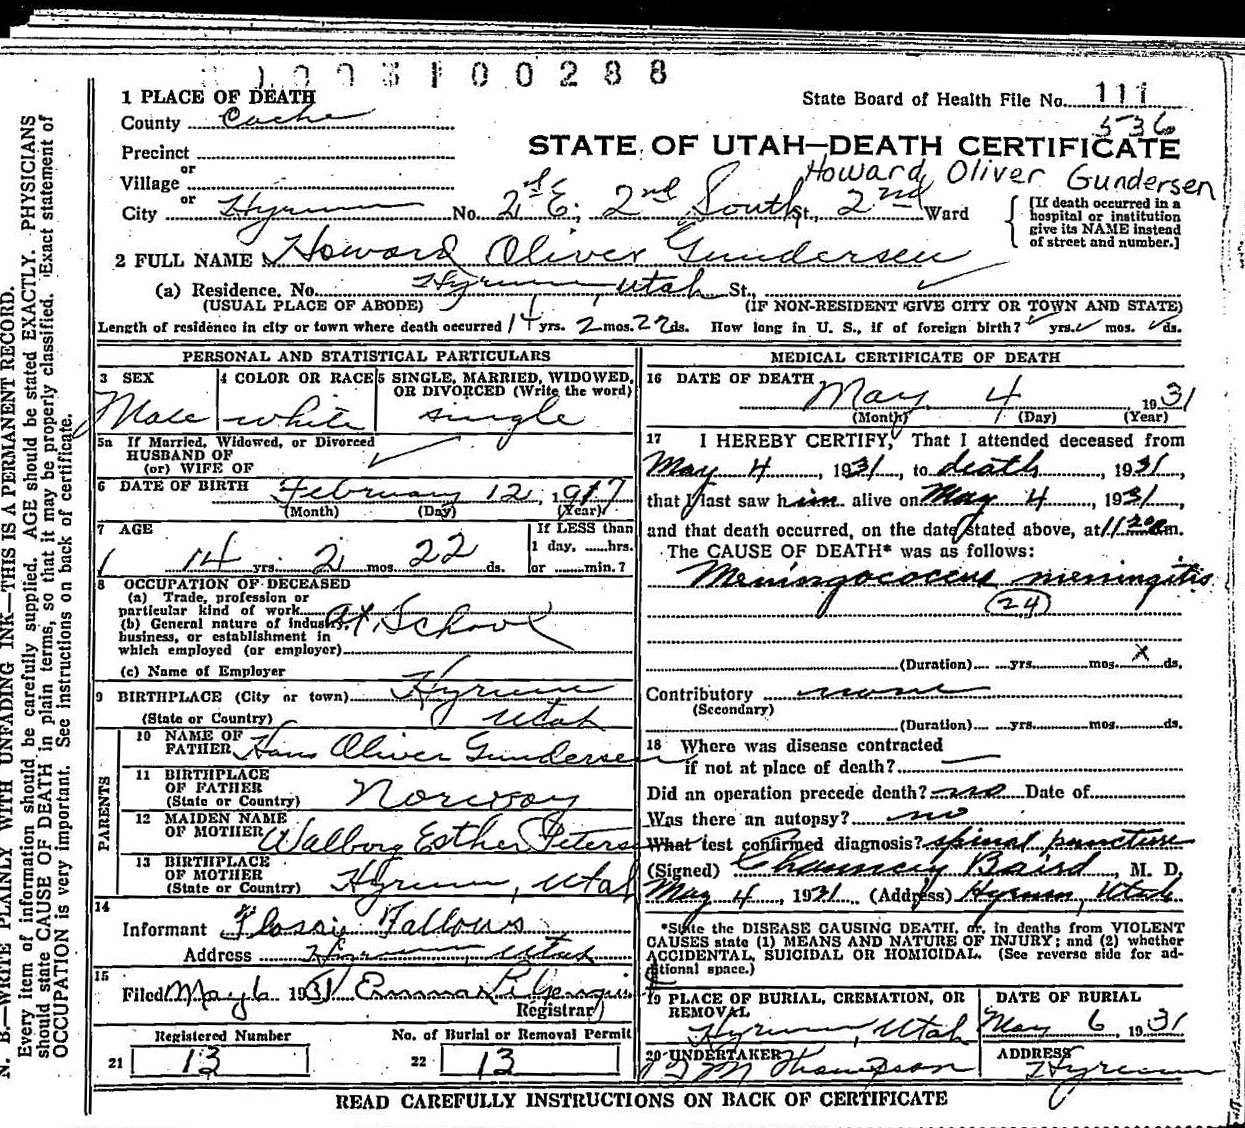 1003100288
1 PLACE OF DEATH
State Board of Health File No. 111
536
County Cache
STATE OF UTAH—DEATH CERTIFICATE
Precinct
Howard Oliver Gundersen
or
Village
or
City Hyrum No. 2nd E; 2nd South St., 2nd Ward
[If death occurred in a hospital or institution give its NAME instead of street and number.]
2 FULL NAME Howard Oliver Gundersen
(a) Residence. No. Hyrum, Utah St.,
(USUAL PLACE OF ABODE) (IF NON-RESIDENT GIVE CITY OR TOWN AND STATE)
Length of residence in city or town where death occurred 14 yrs. 2 mos. 22 ds. How long in U. S., if of foreign birth? yrs. mos. ds.
PERSONAL AND STATISTICAL PARTICULARS
3 SEX
Male
4 COLOR OR RACE
white
5 SINGLE, MARRIED, WIDOWED, OR DIVORCED (Write the word)
single
5a If Married, Widowed, or Divorced
HUSBAND OF
(or) WIFE OF
6 DATE OF BIRTH February 12, 1917
(Month) (Day) (Year)
7 AGE
14 yrs. 2 mos. 22 ds.
If LESS than
1 day, ......hrs.
or ......min.?
8 OCCUPATION OF DECEASED
(a) Trade, profession or
particular kind of work
(b) General nature of industry, At School
business, or establishment in
which employed (or employer)
(c) Name of Employer
9 BIRTHPLACE (City or town) Hyrum
(State or Country) Utah
PARENTS
10 NAME OF
FATHER Hans Oliver Gundersen
11 BIRTHPLACE
OF FATHER
(State or Country) Norway
12 MAIDEN NAME
OF MOTHER Walborg Esther Peters
13 BIRTHPLACE
OF MOTHER
(State or Country) Hyrum, Utah
14
Informant Flossie Fallows
Address Hyrum, Utah
15
Filed May 6 1931 Emma
Registrar
Registered Number
21 13
No. of Burial or Removal Permit
22 13
MEDICAL CERTIFICATE OF DEATH
16 DATE OF DEATH
May 4 1931
(Month) (Day) (Year)
17 I HEREBY CERTIFY, That I attended deceased from
May 4, 1931, to death, 1931,
that I last saw him alive on May 4, 1931,
and that death occurred, on the date stated above, at 11 m.
The CAUSE OF DEATH* was as follows:
Meningococcus meningitis
24
(Duration) yrs. mos. X ds.
Contributory none
(Secondary)
(Duration) yrs. mos. ds.
18 Where was disease contracted
if not at place of death?
Did an operation precede death? no Date of
Was there an autopsy? no
What test confirmed diagnosis? spinal puncture
(Signed) Chauncey Baird, M. D.
May 4, 1931 (Address) Hyrum, Utah
*State the DISEASE CAUSING DEATH, or, in deaths from VIOLENT
CAUSES state (1) MEANS AND NATURE OF INJURY; and (2) whether
ACCIDENTAL, SUICIDAL OR HOMICIDAL. (See reverse side for ad-
ditional space.)
19 PLACE OF BURIAL, CREMATION, OR
REMOVAL
Hyrum, Utah
DATE OF BURIAL
May 6, 1931
20 UNDERTAKER
M Thompson
ADDRESS
Hyrum
READ CAREFULLY INSTRUCTIONS ON BACK OF CERTIFICATE
N. B.—WRITE PLAINLY WITH UNFADING INK—THIS IS A PERMANENT RECORD.
Every item of information should be carefully supplied. AGE should be stated EXACTLY. PHYSICIANS
should state CAUSE OF DEATH in plain terms, so that it may be properly classified. Exact statement of
OCCUPATION is very important. See instructions on back of certificate.